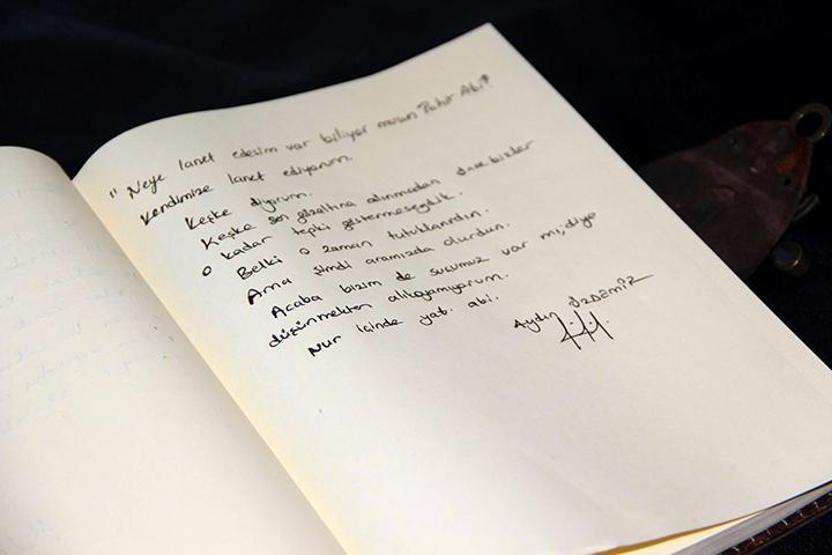 " Neye lanet edesim var biliyor musun Tahir Abi?
Kendimize lanet ediyorum.
Keşke diyorum.
Keşke sen gözaltına alınmadan önce bizler
o kadar tepki göstermeseydik.
Belki o zaman tutuklanırdın.
Ama şimdi aramızda olurdun.
Acaba bizim de suçumuz var mı, diye
düşünmekten alıkoyamıyorum.
Nur içinde yat. abi.
Aydın ÖZDEMİR